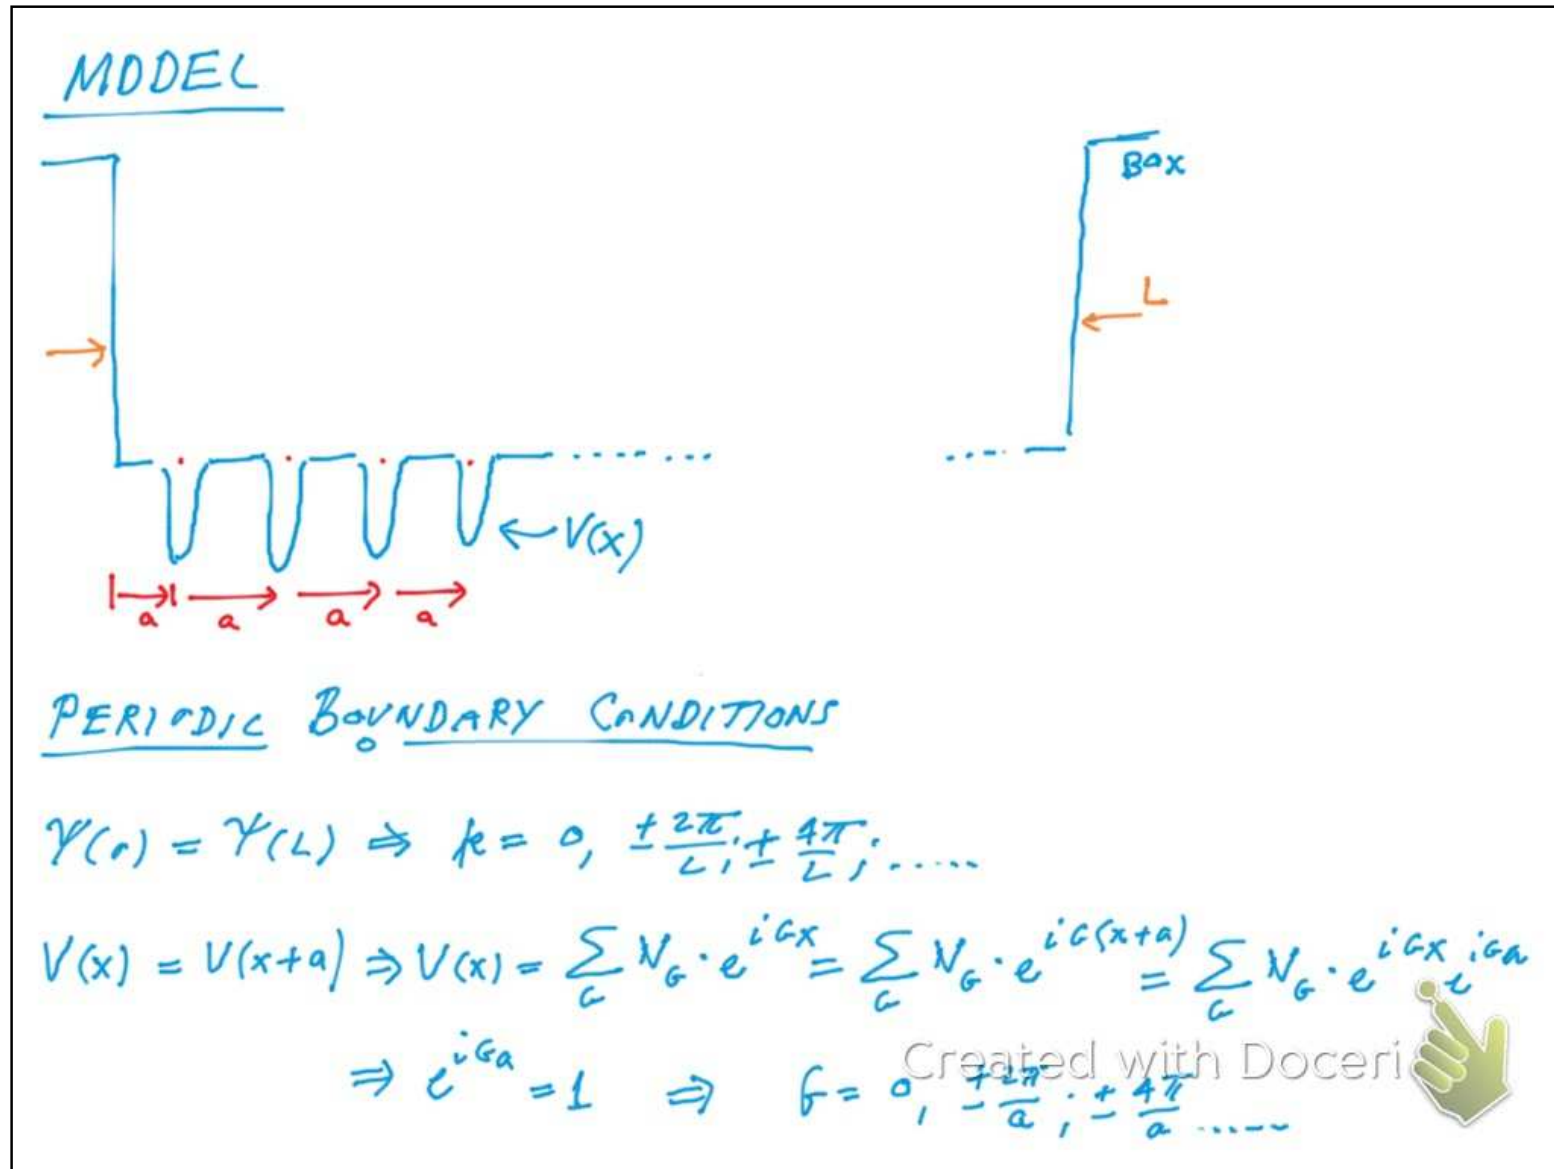 MODEL
Box
L
V(x)
a a a a
PERIODIC BOUNDARY CONDITIONS
Ψ(0) = Ψ(L) ⇒ k = 0, ± 2π/L ; ± 4π/L ; .....
V(x) = V(x+a) ⇒ V(x) = ∑_G V_G · e^{iGx} = ∑_G V_G · e^{iG(x+a)} = ∑_G V_G · e^{iGx} e^{iGa}
⇒ e^{iGa} = 1 ⇒ G = 0, ± 2π/a ; ± 4π/a .....
Created with Doceri